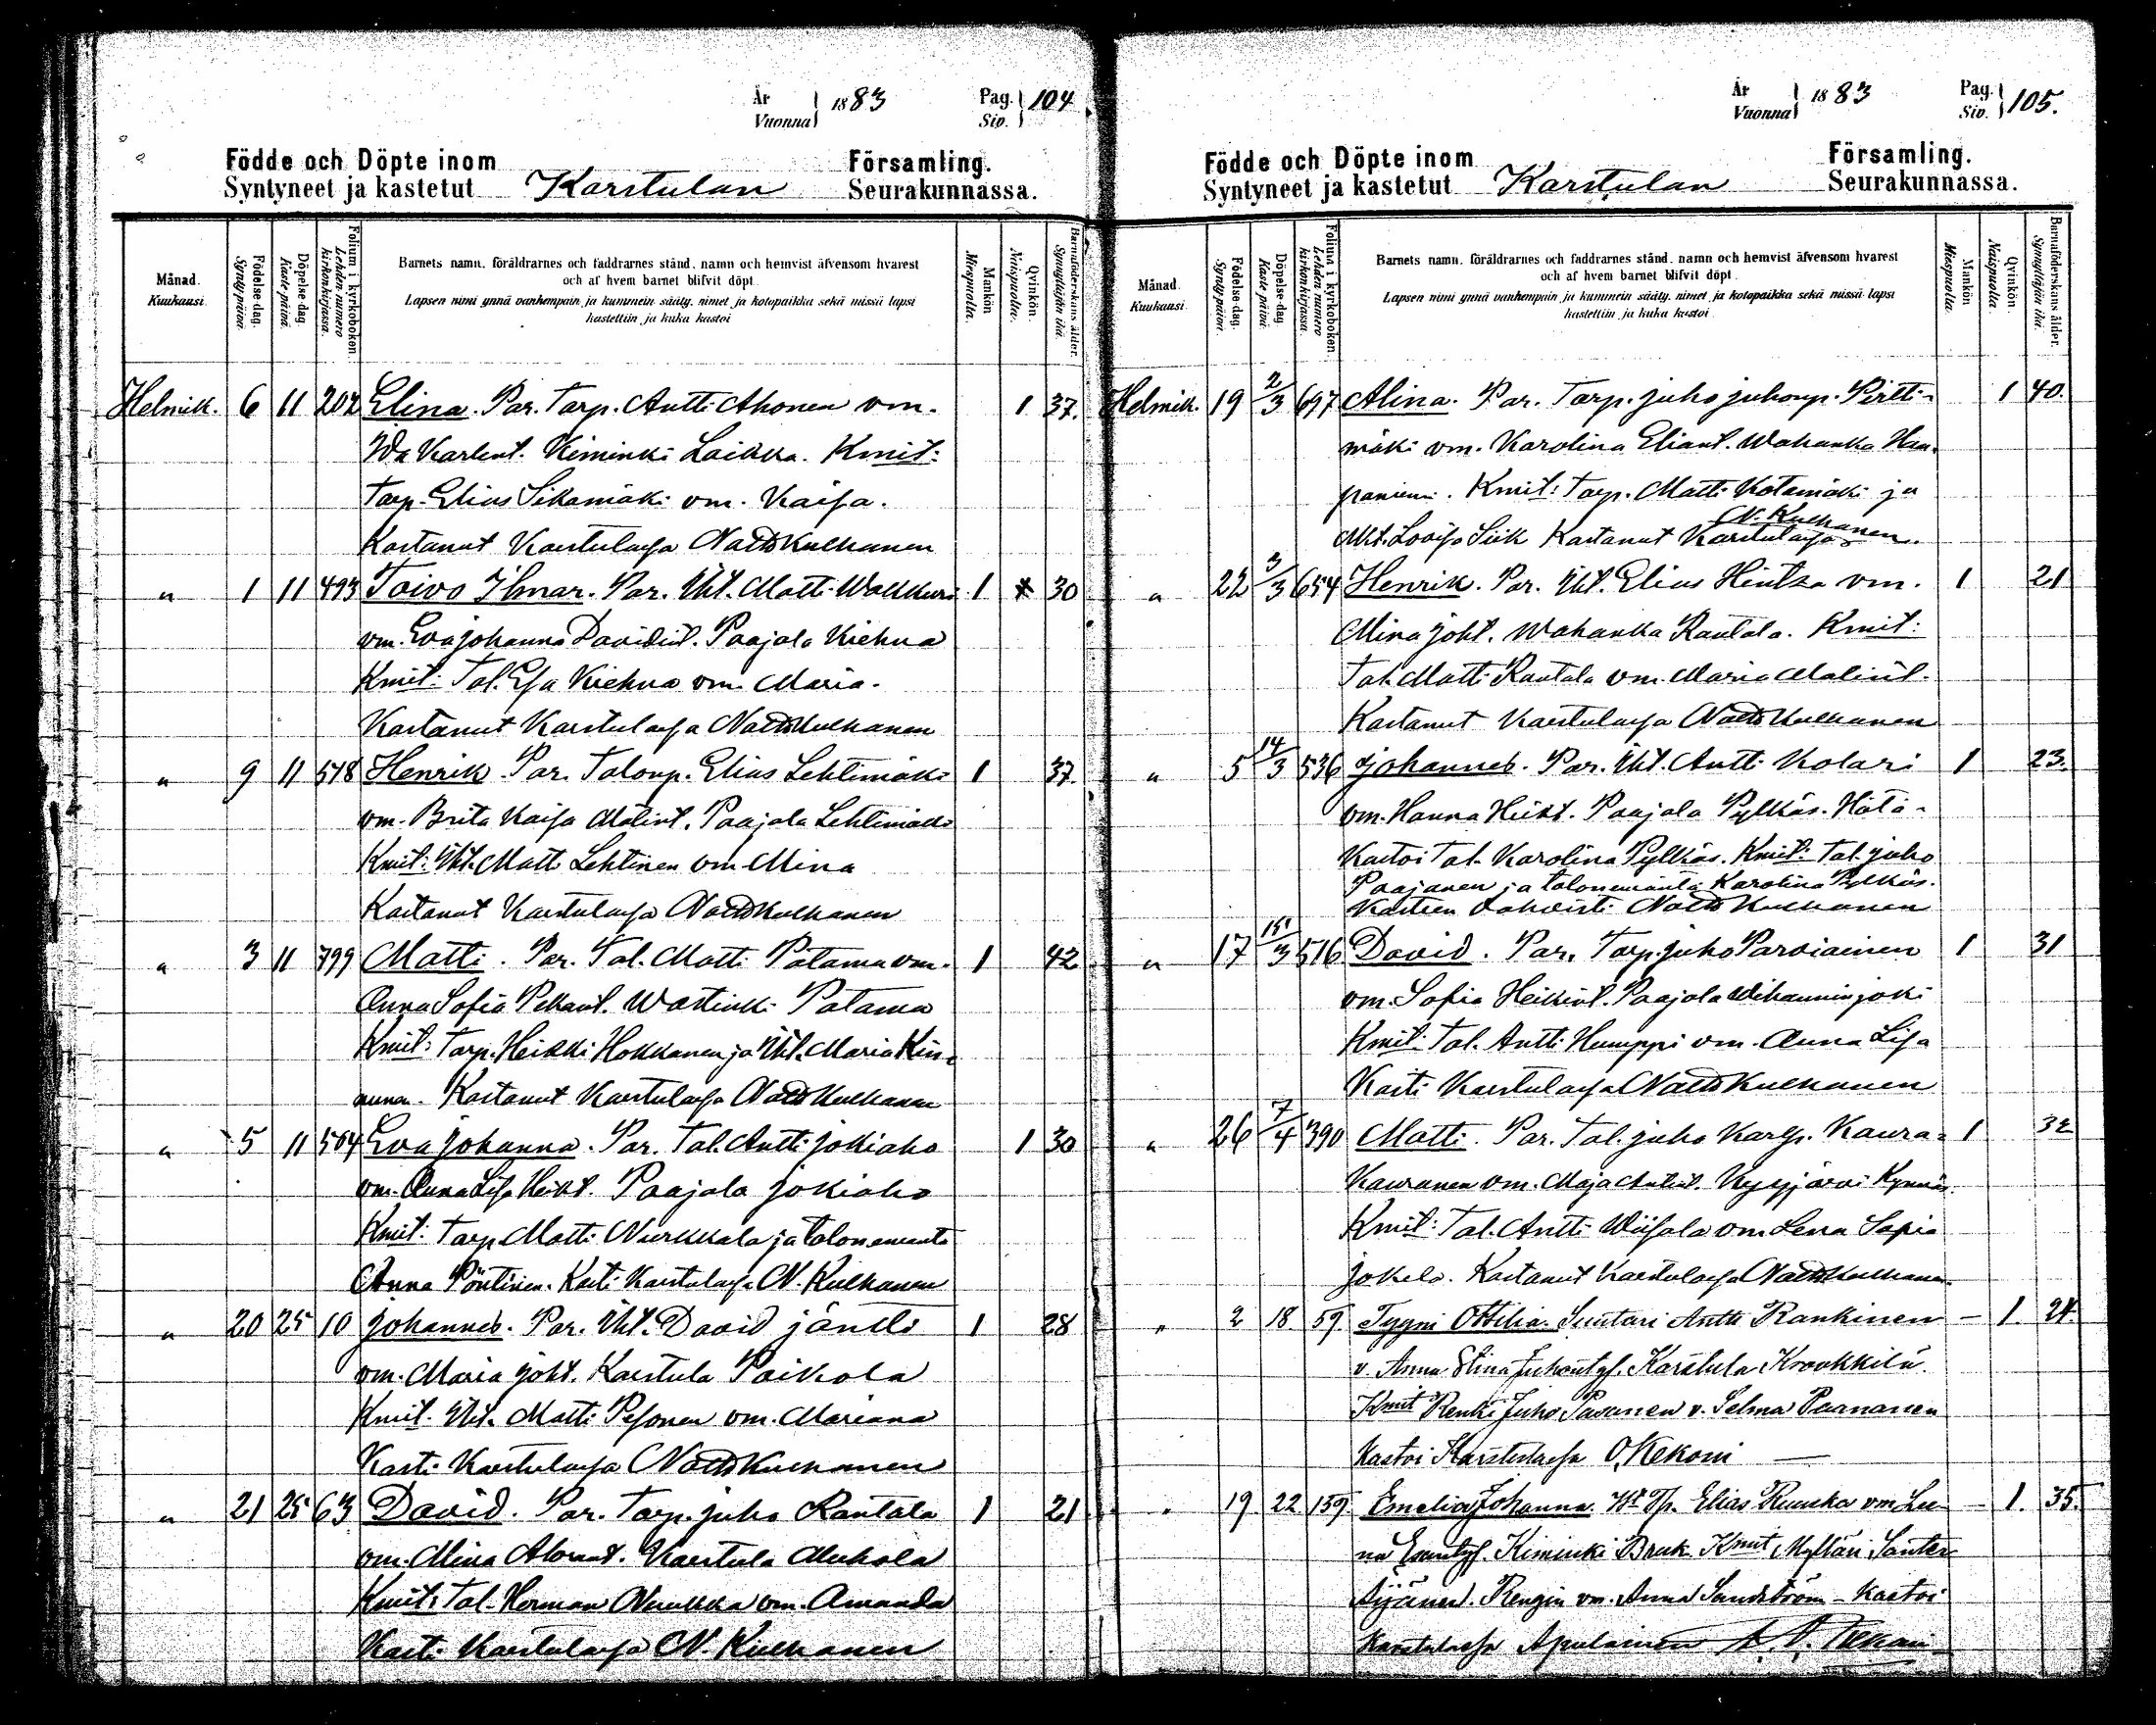 År Vuonna 1883 Pag. Siv. 104
Födde och Döpte inom Församling.
Syntyneet ja kastetut Karstulan Seurakunnassa.
Månad. Kuukausi.
Födelse-dag. Synty-päivä.
Döpelse-dag. Kaste-päivä.
Folium i kyrkoboken. Lehden numero kirkonkirjassa.
Barnets namn, föräldrarnes och faddrarnes stånd, namn och hemvist äfvensom hvarest
och af hvem barnet blifvit döpt.
Lapsen nimi ynnä vanhempain ja kummein sääty, nimet ja kotopaikka sekä missä lapsi
kastettiin ja kuka kastoi
Mankön Miespuolia.
Qvinkön. Naispuolia.
Barnföderskans ålder. Synnyttäjän ikä.
Helmik. 6 11 202 Elina. Par. Tarp. Antti Ahonen vm. 1 37.
Ida Karlent. Kiminki Laikka. Kmit:
Tarp. Elias Sikamäki vm. Kaisa.
Kastanut Karstulassa N. Kulhanen
" 1 11 493 Toivo Ilmar. Par. Itl. Matti Wakkuri 1 30
vm. Eva Johanna Davidint. Paajala Kiehna
Kmit: Tal. Esa Kiehna vm. Maria.
Kastanut Karstulassa Kulhanen
" 9 11 518 Henrik. Par. Talonp. Elias Lehtimäki 1 37.
vm. Brita Kaisa Matint. Paajala Lehtimäki
Kmit: Itl. Matti Lehtinen vm. Mina
Kastanut Karstulassa Kulhanen
" 3 11 799 Matti. Par. Tal. Matti Patama vm. 1 42
Anna Sofia Pekant. Wastinki Patama
Kmit: Tarp. Heikki Hokkanen ja Itl. Maria Kin-
nunen. Kastanut Karstulassa Kulhanen
" 5 11 504 Eva Johanna. Par. Tal. Antti Jokiaho 1 30
vm. Anna Lisa Heikt. Paajala Jokiaho
Kmit: Tarp. Matti Nurkkala ja talonemäntä
Anna Pöntinen. Kasti Karstulassa N. Kulhanen
" 20 25 10 Johannes. Par. Itl. David Jäntti 1 28
vm. Maria Joht. Karstula Paikola
Kmit. Itl. Matti Pesonen vm. Mariana
Kasti Karstulassa Kulhanen
" 21 25 63 David. Par. Tarp. Juho Rantala 1 21
vm. Mina Karstula Muhola
Kmit: Tal. Herman Nuukka vm. Amanda
Kasti Karstulassa N. Kulhanen
År Vuonna 1883 Pag. Siv. 105.
Födde och Döpte inom Församling.
Syntyneet ja kastetut Karstulan Seurakunnassa.
Månad. Kuukausi.
Födelse-dag. Synty-päivä.
Döpelse-dag. Kaste-päivä.
Folium i kyrkoboken. Lehden numero kirkonkirjassa.
Barnets namn, föräldrarnes och faddrarnes stånd, namn och hemvist äfvensom hvarest
och af hvem barnet blifvit döpt.
Lapsen nimi ynnä vanhempain ja kummein sääty, nimet ja kotopaikka sekä missä lapsi
kastettiin ja kuka kastoi
Mankön Miespuolia.
Qvinkön. Naispuolia.
Barnföderskans ålder. Synnyttäjän ikä.
Helmik. 19 2/3 697 Alina. Par. Tarp. Juho Juhonp. Pirtti- 1 40.
mäki vm. Karolina Eliant. Wahanka Haa-
paniemi. Kmit: Tarp. Matti Kotamäki ja
Lovisa Siik Kastanut Karstulassa N. Kulhanen.
" 22 3/3 654 Henrik. Par. Itl. Elias Hintsa vm. 1 21
Mina Joht. Wahanka Rantala. Kmit:
Tal. Matti Rantala vm. Maria Matint.
Kastanut Karstulassa Kulhanen
" 5 14/3 536 Johannes. Par. Itl. Antti Kolari 1 23.
vm. Hanna Heikt. Paajala Pylkäs. Hätä-
Kastoi Tal. Karolina Pylkäs. Kmit: Tal. Juho
Paajanen ja talonemäntä Karolina Pylkäs.
Kasteen vahvisti Kulhanen
" 17 15/3 516 David. Par. Tarp. Juho Parviainen 1 31
vm. Sofia Heikint. Paajala Wihanninjoki
Kmit: Tal. Antti Humppi vm. Anna Lisa
Kasti Karstulassa Kulhanen
" 26 7/4 390 Matti. Par. Tal. Juho Karlp. Kaura- 1 32
Kauranen vm. Maja Antint. Kyyjärvi Kynnäs.
Kmit: Tal. Antti Wiisala vm. Lena Sofia
Jokela. Kastanut Karstulassa Kulhanen
" 2 18. 59. Tyyni Ottilia. Suutari Antti Rankinen — 1. 24.
v. Anna Stina Juhontyt. Karstula Kroukkilu.
Kmit Renki Juho Pasanen v. Selma Paananen
Kastoi Karstulassa O. Kekoni —
" 19. 22 159. Emelia Johanna. Elias Ruuska vm Lee- — 1. 35.
na Esantyt. Kiminki Bruk. Kmit. Mylläri Santer
Äijänen. Rengin vm. Anna Sundström – Kastoi
Karstulassa Apulainen